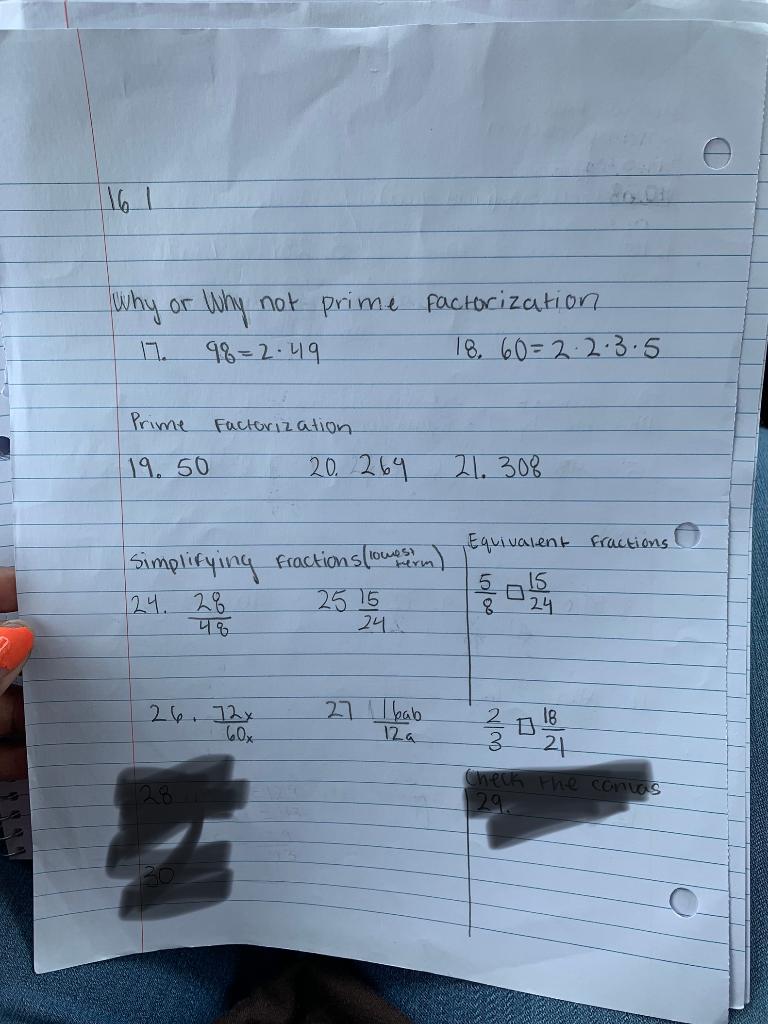 16 1
Why or Why not prime factorization
17. 98 = 2 · 49
18. 60 = 2 · 2 · 3 · 5
Prime Factorization
19. 50
20. 264
21. 308
Simplifying fractions (lowest term)
24. 28/48
25 15/24
26. 72x/60x
27 16ab/12a
28
30
Equivalent fractions
5/8 □ 15/24
2/3 □ 18/21
Check the canvas
29.